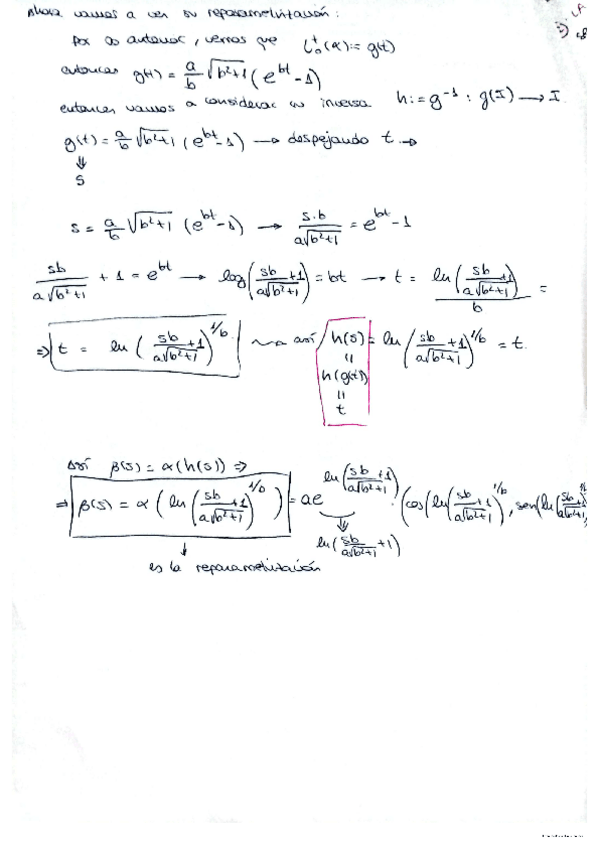 Ahora vamos a ver su reparametrización:
Por lo anterior, vemos que L₀ᵗ(α) := g(t)
entonces g(t) = a/b √(b²+1) (e^(bt) - 1)
entonces vamos a considerar su inversa h := g⁻¹ : g(I) → I
g(t) = a/b √(b²+1) (e^(bt) - 1) → despejando t →
⇓
s
s = a/b √(b²+1) (e^(bt) - 1) → s·b/(a√(b²+1)) = e^(bt) - 1
sb/(a√(b²+1)) + 1 = e^(bt) → log(sb/(a√(b²+1)) + 1) = bt → t = ln(sb/(a√(b²+1)) + 1)/b =
⇒ t = ln(sb/(a√(b²+1)) + 1)^(1/b) ⇝ así h(s) = ln(sb/(a√(b²+1)) + 1)^(1/b) = t.
"
h(g(t))
"
t
Así β(s) = α(h(s)) ⇒
⇒ β(s) = α(ln(sb/(a√(b²+1)) + 1)^(1/b)) = ae^(ln(sb/(a√(b²+1)) + 1)) · (cos(ln(sb/(a√(b²+1)) + 1)^(1/b), sen(ln(sb/(a√(b²+1)) + 1
⇓
ln(sb/(a√(b²+1)) + 1)
↓
es la reparametrización